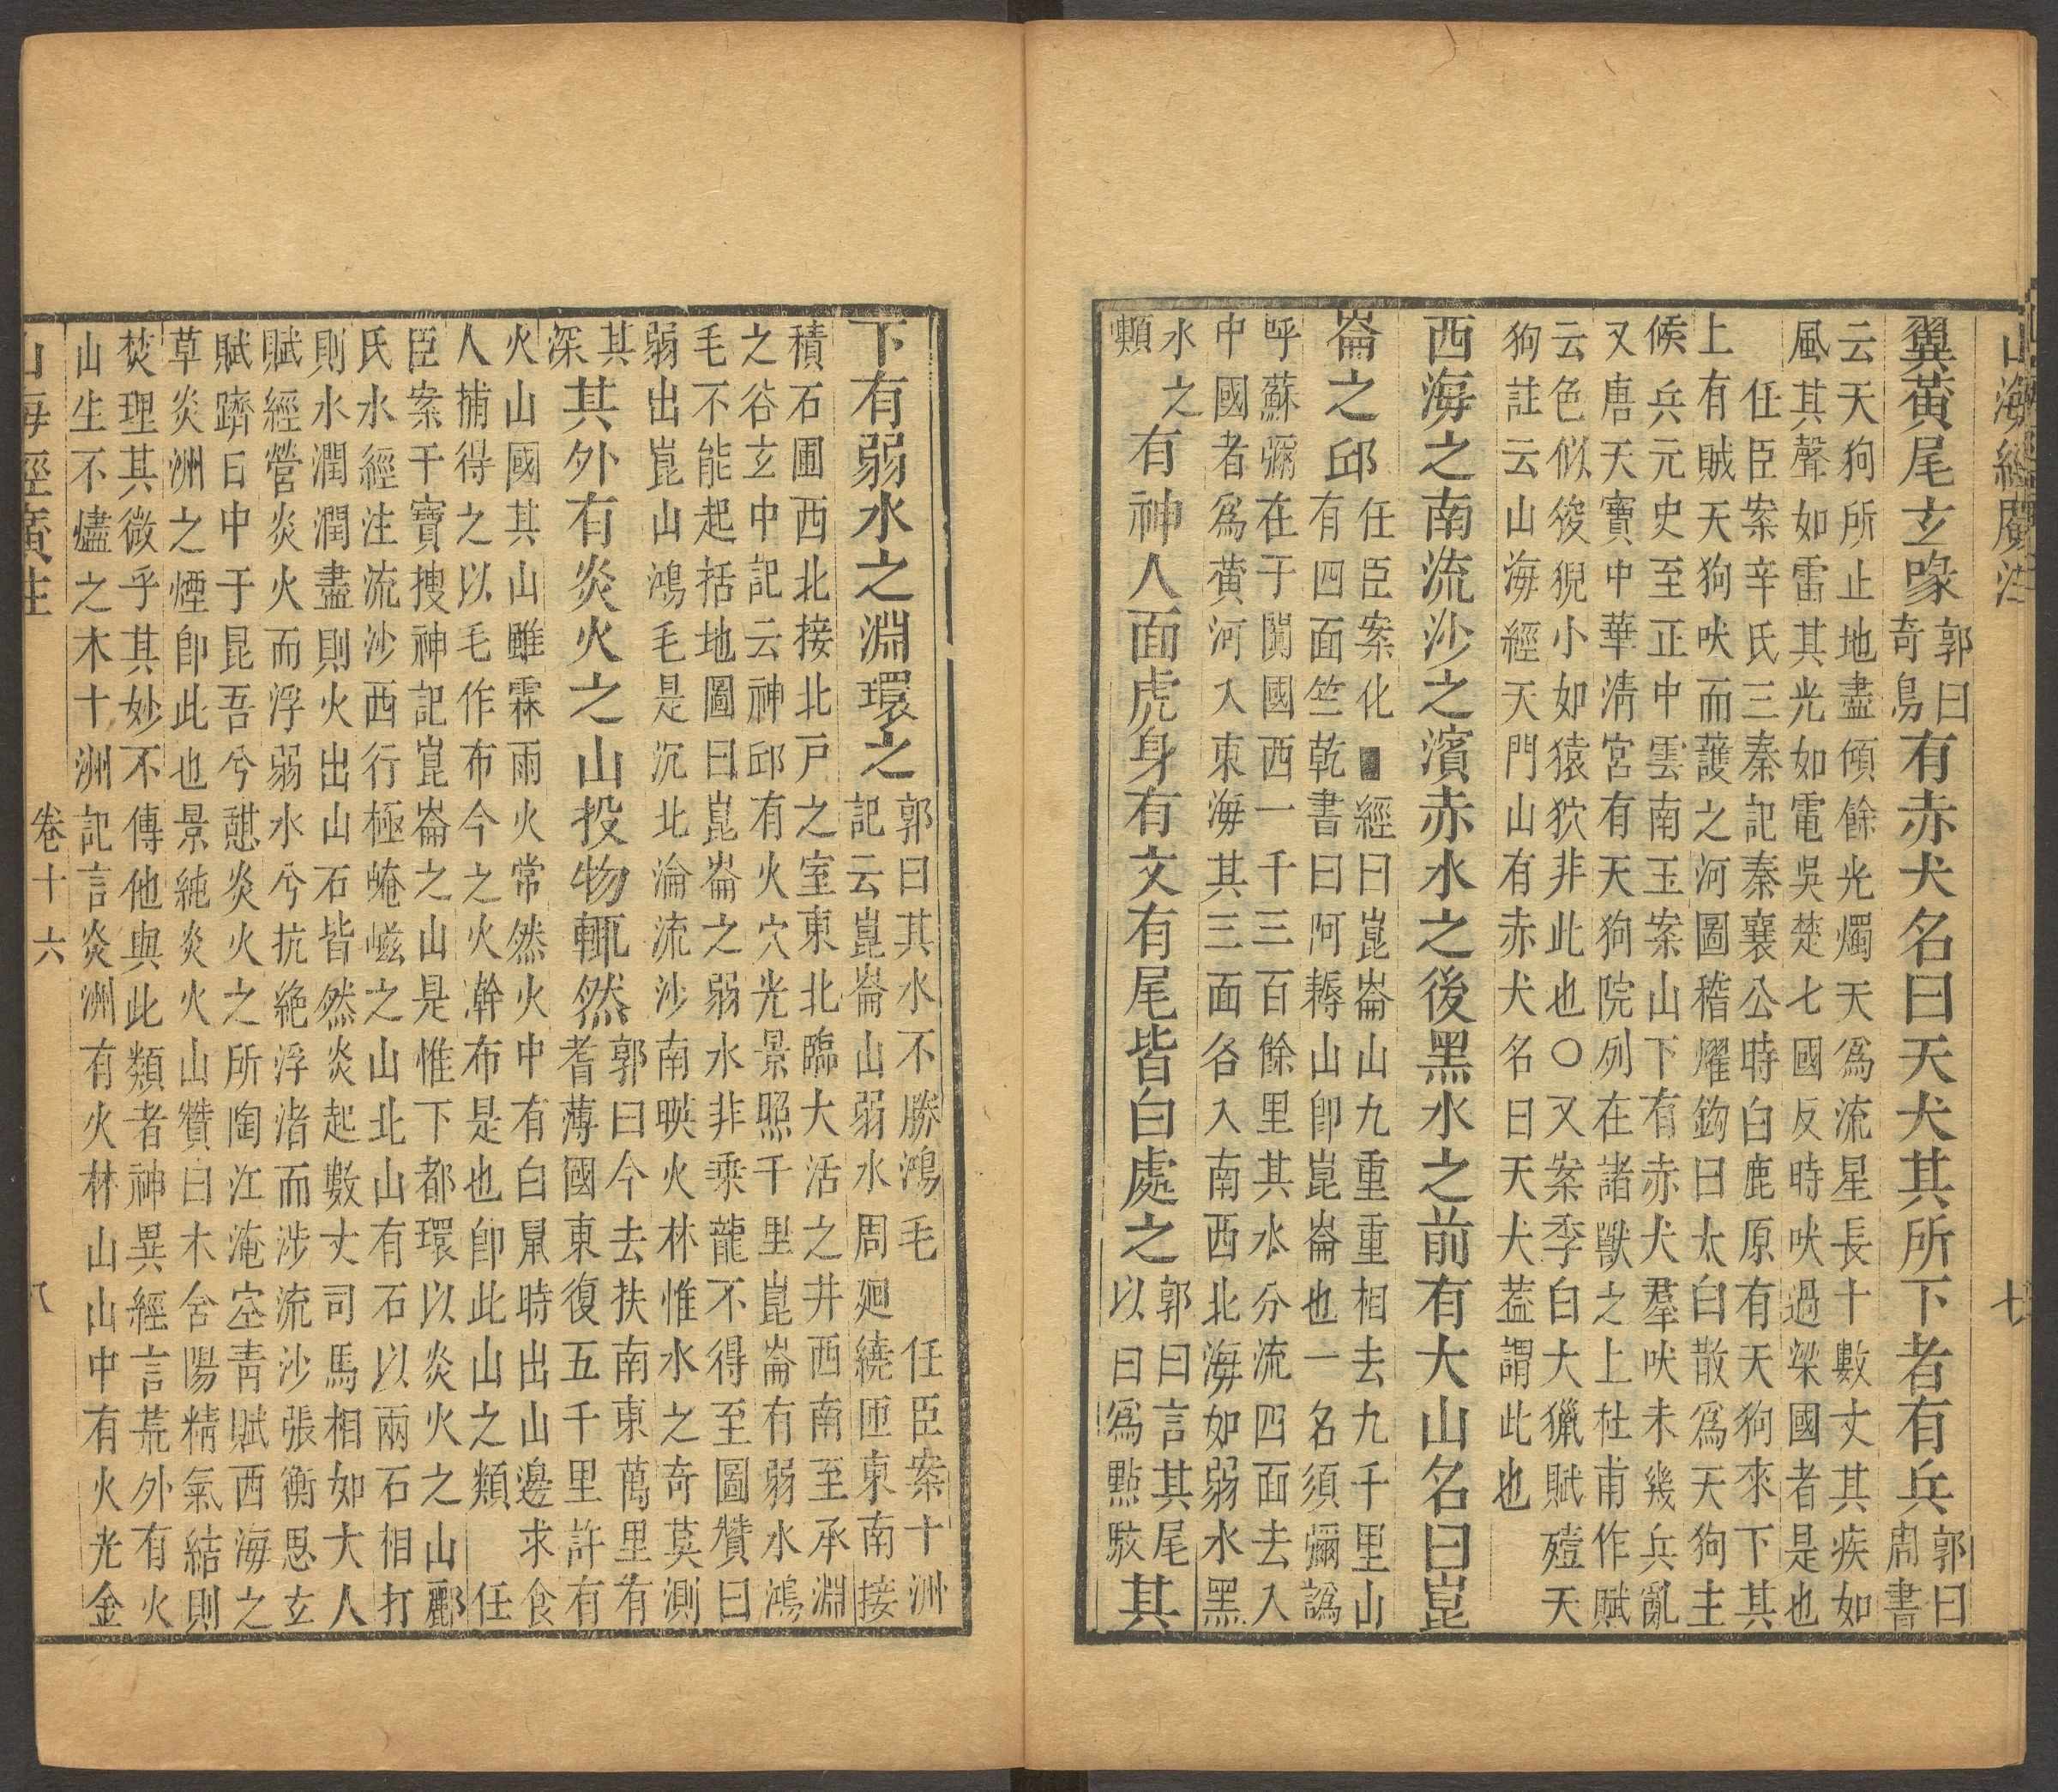 山海經廣注　七
翼黃尾玄喙郭曰奇鳥有赤犬名曰天犬其所下者有兵郭曰周書
云天狗所止地盡傾餘光燭天爲流星長十數丈其疾如
風其聲如雷其光如電吳楚七國反時吠過梁國者是也
任臣案辛氏三秦記秦襄公時白鹿原有天狗來下其
上有賊天狗吠而護之河圖稽燿鉤曰太白散爲天狗主
候兵元史至正中雲南玉案山下有赤犬羣吠未幾兵亂
又唐天寶中華清宮有天狗院列在諸獸之上杜甫作賦
云色似狻猊小如猿狖非此也○又案李白大獵賦殪天
狗註云山海經天門山有赤犬名曰天犬葢謂此也
西海之南流沙之濱赤水之後黑水之前有大山名曰崑
崙之邱任臣案化■經曰崑崙山九重重相去九千里山
有四面竺乾書曰阿耨山卽崑崙也一名須彌譌
呼蘇彌在于闐國西一千三百餘里其水分流四面去入
中國者爲黃河入東海其三面各入南西北海如弱水黑
水之類有神人面虎身有文有尾皆白處之郭曰言其尾以白爲點駁其
下有弱水之淵環之郭曰其水不勝鴻毛　任臣案十洲
記云崑崙山弱水周廻繞匝東南接
積石圃西北接北戸之室東北臨大活之井西南至承淵
之谷玄中記云神邱有火穴光景照千里崑崙有弱水鴻
毛不能起括地圖曰崑崙之弱水非乘龍不得至圖贊曰
弱出崑山鴻毛是沉北淪流沙南暎火林惟水之奇莫測
其深其外有炎火之山投物輒然郭曰今去扶南東萬里有
耆薄國東復五千里許有
火山國其山雖霖雨火常然火中有白鼠時出山邊求食
人捕得之以毛作布今之火澣布是也卽此山之類　任
臣案干寶搜神記崑崙之山是惟下都環以炎火之山酈
氏水經注流沙西行極崦嵫之山北山有石以兩石相打
則水潤潤盡則火出山石皆然炎起數丈司馬相如大人
賦經營炎火而浮弱水兮抗絶浮渚而涉流沙張衡思玄
賦躋日中于昆吾兮憇炎火之所陶江淹空青賦西海之
草炎洲之煙卽此也景純炎火山贊曰木含陽精氣結則
焚理其微乎其妙不傳他與此類者神異經言荒外有火
山生不燼之木十洲記言炎洲有火林山山中有火光金
山海經廣注　卷十六　八